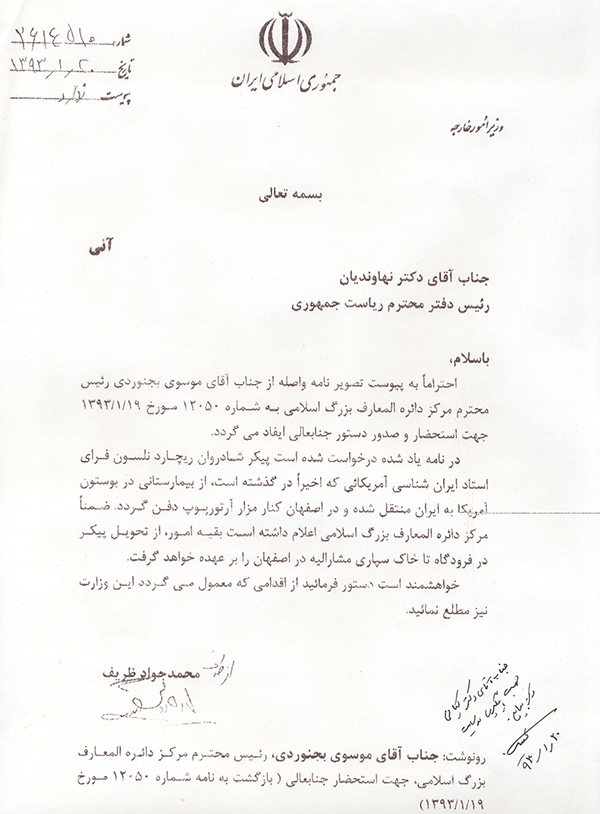 شماره ۲۶۱۴۵۱۰
تاریخ ۱۳۹۳/۱/۲۰
پیوست ندارد
جمهوری اسلامی ایران
وزیر امور خارجه
بسمه تعالی
آنی
جناب آقای دکتر نهاوندیان
رئیس دفتر محترم ریاست جمهوری
باسلام،
احتراماً به پیوست تصویر نامه واصله از جناب آقای موسوی بجنوردی رئیس
محترم مرکز دائره المعارف بزرگ اسلامی به شماره ۱۲۰۵۰ مورخ ۱۳۹۳/۱/۱۹
جهت استحضار و صدور دستور جنابعالی ایفاد می گردد.
در نامه یاد شده درخواست شده است پیکر شادروان ریچارد نلسون فرای
استاد ایران شناسی آمریکائی که اخیراً در گذشته است، از بیمارستانی در بوستون
آمریکا به ایران منتقل شده و در اصفهان کنار مزار آرتورپوپ دفن گردد. ضمناً
مرکز دائره المعارف بزرگ اسلامی اعلام داشته است بقیه امور، از تحویل پیکر
در فرودگاه تا خاک سپاری مشارالیه در اصفهان را بر عهده خواهد گرفت.
خواهشمند است دستور فرمائید از اقدامی که معمول می گردد این وزارت
نیز مطلع نمائید.
از طرف محمدجواد ظریف
جناب آقای دکتر
۹۳/۱/۲۰
رونوشت: جناب آقای موسوی بجنوردی، رئیس محترم مرکز دائره المعارف
بزرگ اسلامی، جهت استحضار جنابعالی ( بازگشت به نامه شماره ۱۲۰۵۰ مورخ
۱۳۹۳/۱/۱۹)